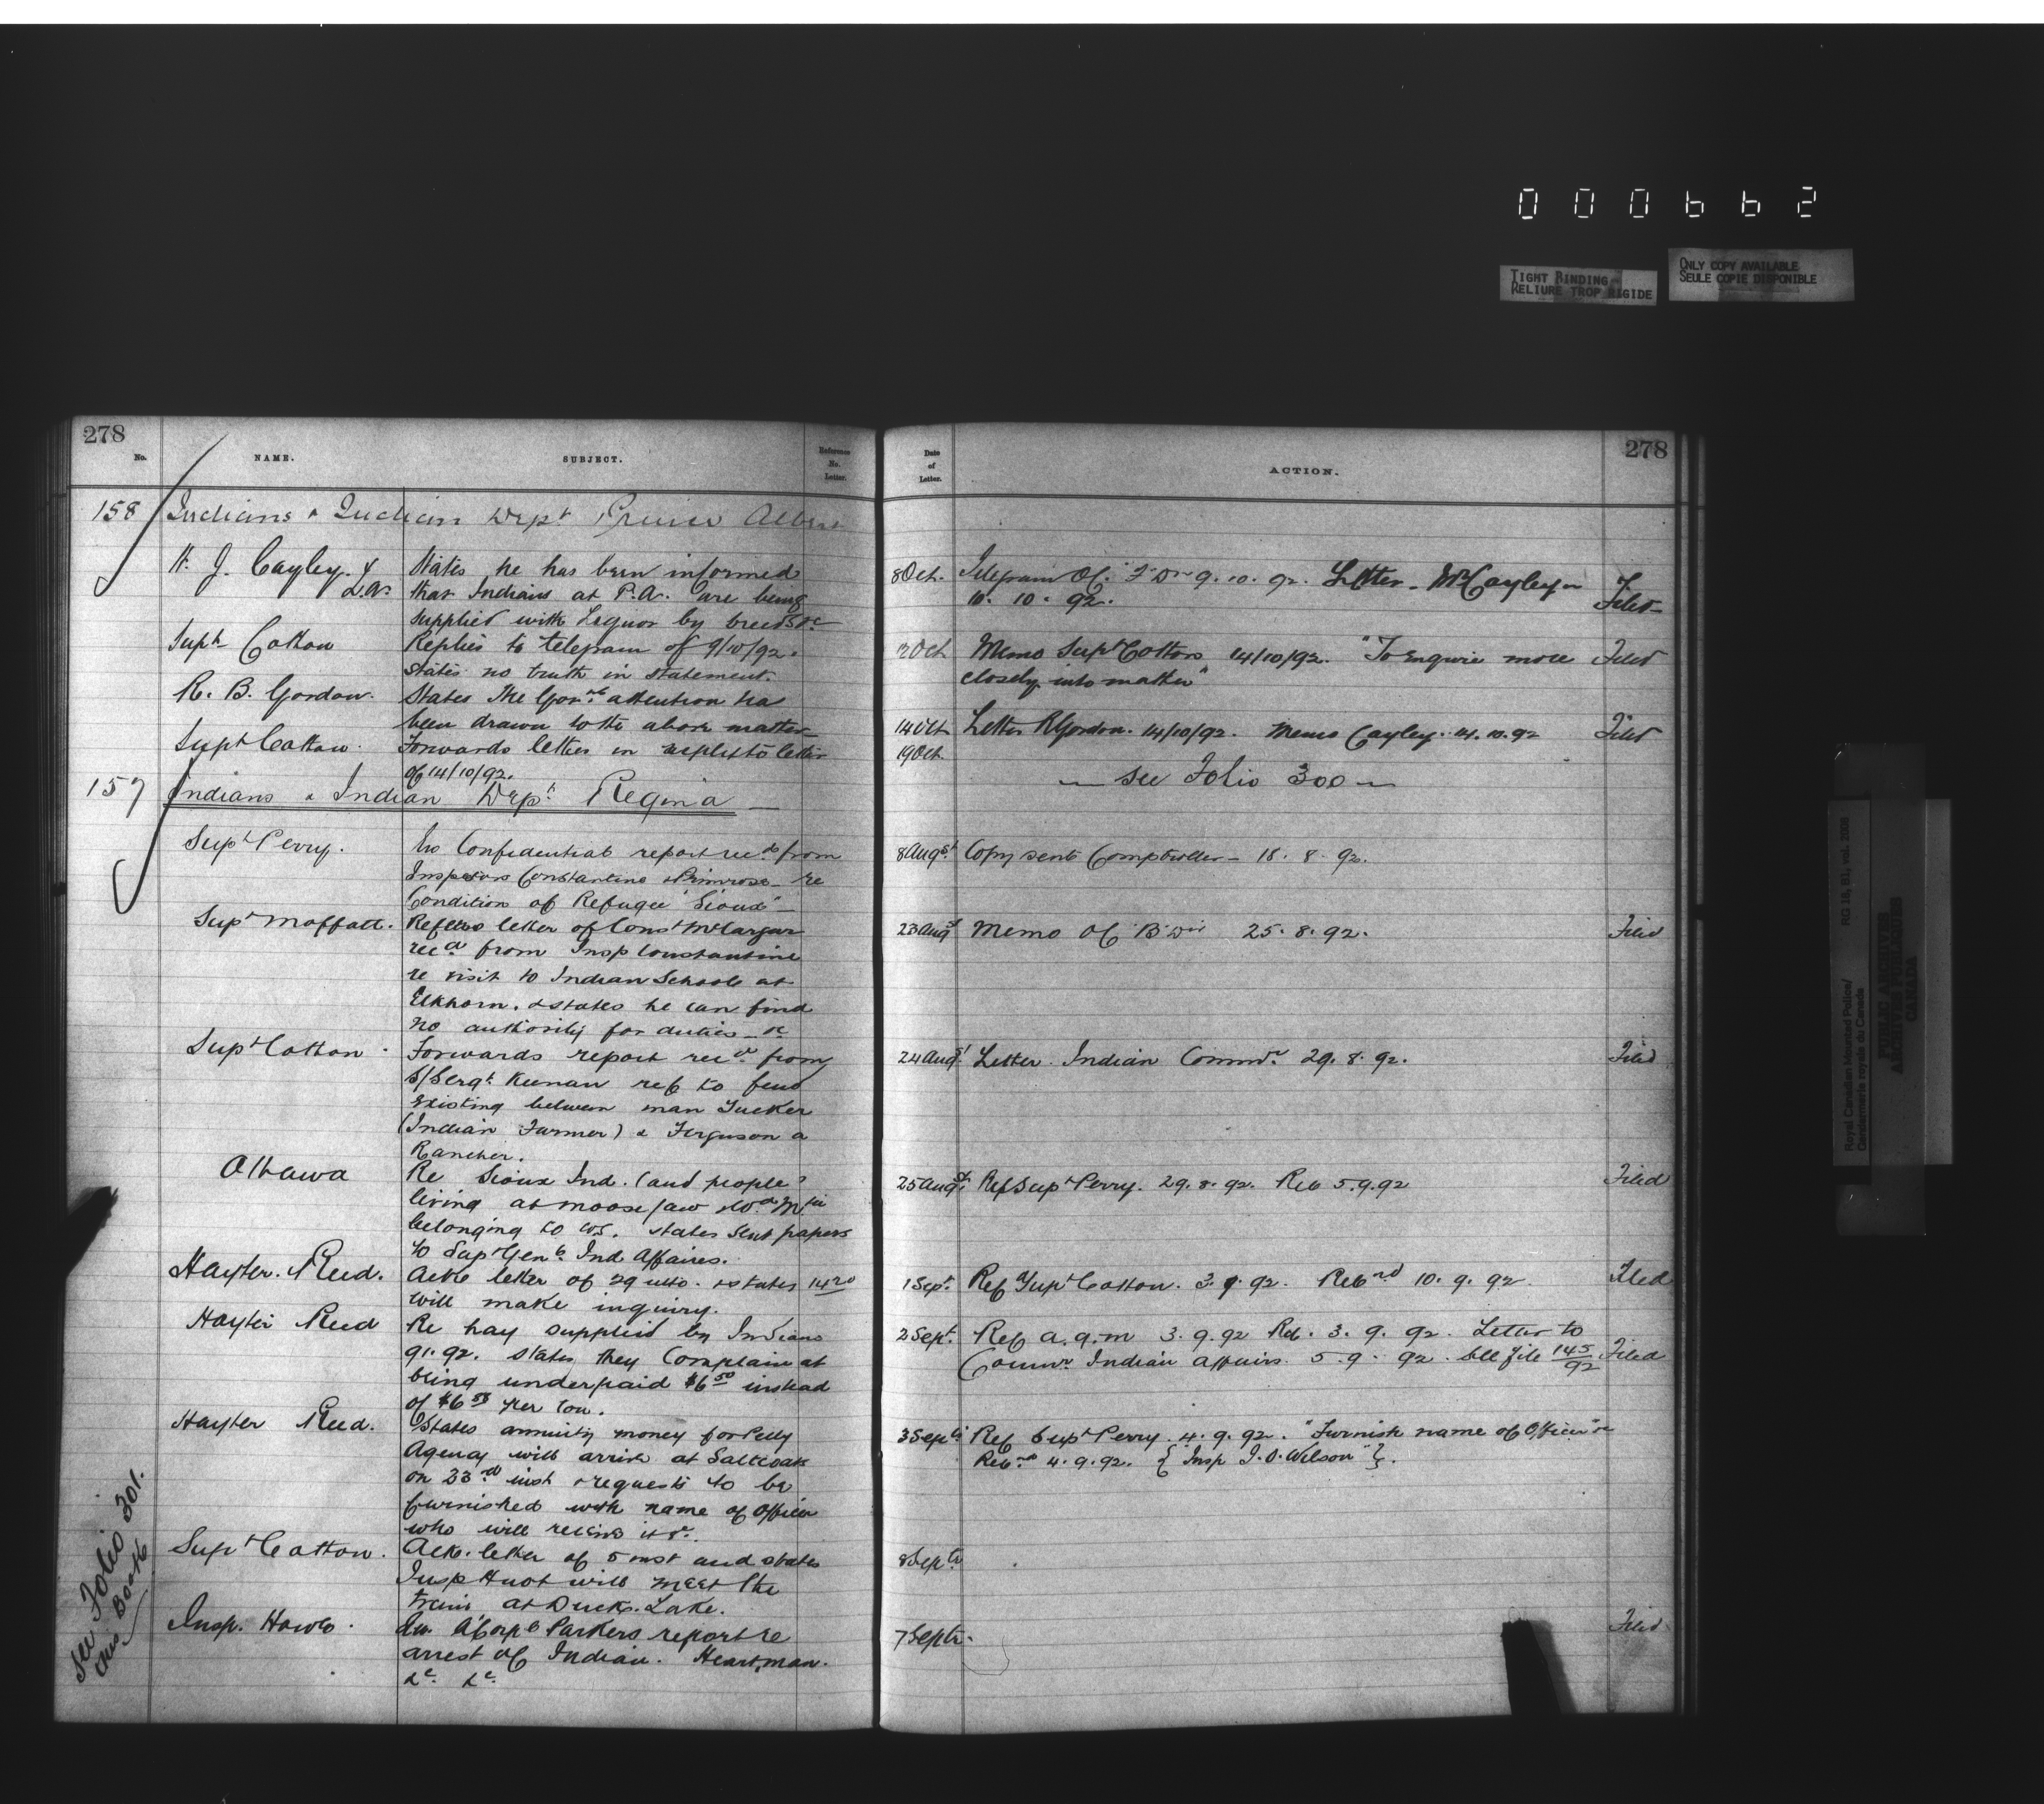 000662
TIGHT BINDING
RELIURE TROP RIGIDE
ONLY COPY AVAILABLE
SEULE COPIE DISPONIBLE
278
No.
NAME.
SUBJECT.
Reference
No.
Letter.
158 Indians & Indian Dept Prince Albert
H. J. Cayley. States he has been informed
that Indians at P.A. are being
supplied with Liquor by breeds &c
Supt Cotton Replies to telegram of 9/10/92.
states no truth in statement.
R. B. Gordon. States the Govrs attention has
been drawn to the above matter
Supt Cotton. Forwards letter in reply to letter
of 14/10/92.
157 Indians & Indian Dept Regina
Supt Perry. Confidential report recd from
Inspectors Constantine & Primrose re
Condition of Refugee "Sioux"
Supt Moffatt. letter of Const
recd from Insp Constantine
re visit to Indian Schools at
Elkhorn. & states he can find
no authority for duties &c
Supt Cotton. Forwards report recd from
S/Sergt Keenan ref to feud
existing between man Tucker
(Indian Farmer) & Ferguson a
Rancher.
Ottawa Re Sioux Ind. (and people?
living at Moose Jaw & Wd Mtn
belonging to U.S. states sent papers
to Supt Genl Ind Affairs.
Hayter Reed. Ackg letter of 29 ulto. & states
will make inquiry.
Hayter Reed Re hay supplied by Indians
91.92. states they Complain at
being underpaid $6 50 instead
of $6 per ton.
Hayter Reed. States annuity money for Pelly
Agency will arrive at Saltcoats
on 23rd inst & requests to be
furnished with name of Officer
who will receive it &c.
Supt Cotton. Ack. letter of 5 inst and states
Insp Huot will meet the
train at Duck Lake.
Insp. Howe. Corpl Parkers report re
arrest of Indian. Heartman.
&c. &c.
See Folio 301.
this Book
278
Date
of
Letter.
ACTION.
8 Oct. Telegram Of. "F" Dn 9. 10. 92. Letter - Mr Cayley
10. 10. 92. Filed
Oct Memo Supt Cotton 14/10/92. "To Enquire more Filed
closely into matter"
14 Oct. Letter R Gordon. 14/10/92. Memo Cayley. 14. 10. 92 Filed
19 Oct.
— See Folio 300 —
8 Augst Copy sent Comptroller — 18. 8. 92.
23 Augst Memo Of "B" Div 25. 8. 92. Filed
24 Augst Letter Indian Commr 29. 8. 92. Filed
25 Augst Ref Supt Perry. 29. 8. 92. Ret 5.9.92 Filed
1 Sept. Ref Supt Cotton. 3. 9. 92. Retnd 10. 9. 92. Filed
2 Sept. Ref a.q.m 3. 9. 92 Ret. 3. 9. 92. Letter to
Commr Indian Affairs. 5. 9. 92. See file 145/92 Filed
3 Sept. Ref Supt Perry. 4. 9. 92. "Furnish name of Officer" &c
Retnd 4. 9. 92. {"Insp J. O. Wilson"}.
8 Septr.
7 Septr. Filed
Royal Canadian Mounted Police/
Gendarmerie royale du Canada
RG 18, B1, vol. 2008
PUBLIC ARCHIVES
ARCHIVES PUBLIQUES
CANADA